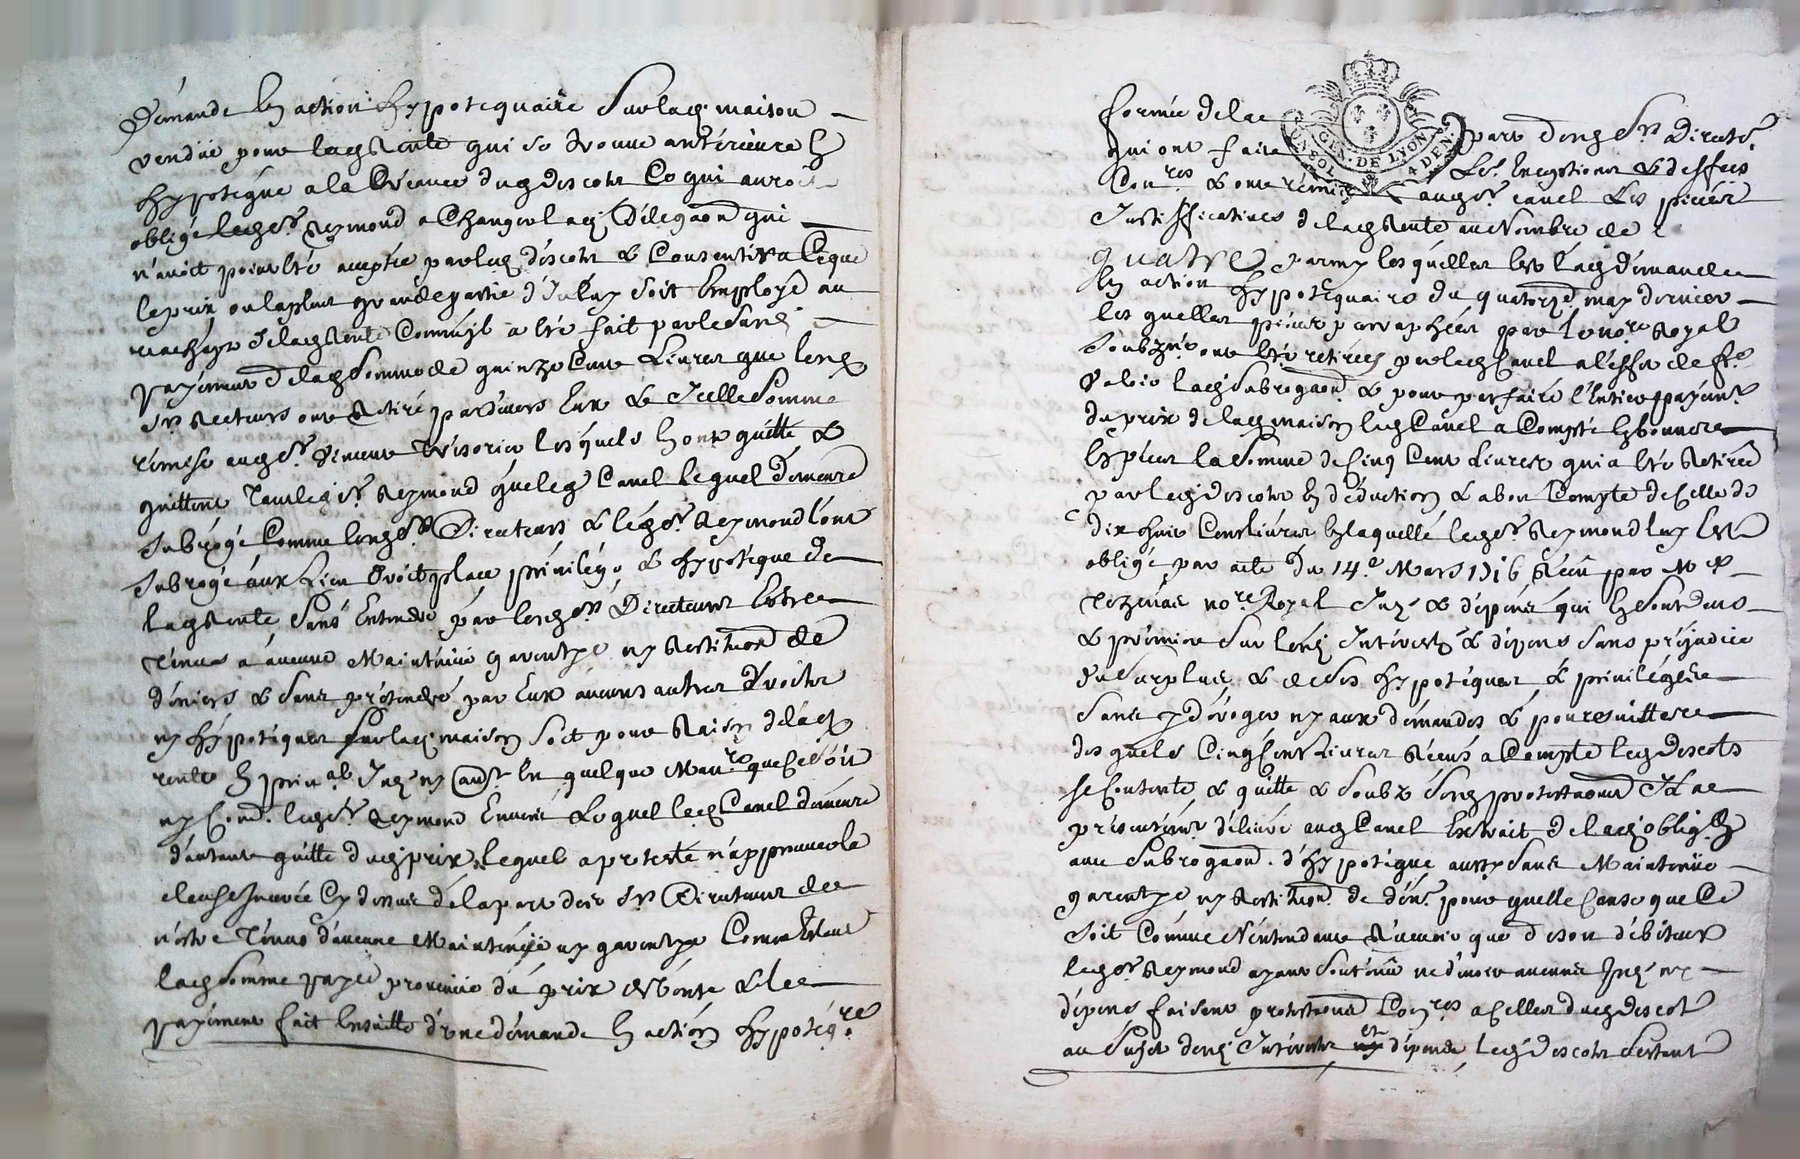 demande en action hypotequaire sur lad. maison
vendue pour lad. rente qui se trouve anterieure en
hypoteque a la Creance dud. descotz Ce qui auroit
obligé led. Sr. Reymond a Changer lad. delegaon qui
n'avoit point été aceptée par led. descotz & Consentir a Ce que
le prix ou la plus grande partie d'Iceluy soit Employé au
rachapt de lad. rente Comme il a été fait par le
payement de lad. somme de quinze Cent Livres que les
Srs Recteurs ont Retiré pardevers Eux & Icelle somme
remise aud. Sr. Tresorier lesquels En ont quitté &
quittent tant led. Sr. Reymond que led. Canel lequel demeure
subrogé Comme lesd. Srs Directeurs & led. Sr. Reymond l'ont
subrogé aux Lieu droit place privilege & hypoteque de
lad. rente sans Entendre par lesd. Srs Directeurs Estre
tenus a aucune Maintenüe garentye ny Restitution de
deniers & sans pretendre par Eux aucuns autres droitz
ny hypoteques sur lad. maison soit pour Raison de lad.
rente En prinal ny autr. En quelque Manre que Ce soit
ny led. Sr. Reymond Envers Lequel led. Canel demeure
d'autant quitte dud. prix, Lequel a protesté n'approuver la
clause Inserée Cy dessus de la part desd. Srs Directeurs de
n'estre tenus d'aucune Maintenüe ny garentye Comme Estant
lad. somme payée provenüe du prix de vente & le
payement fait Ensuitte d'une demande En action hypoteqre
formée de la part desd. Srs Directrs
GEN. DE LYON
4 DEN.
qui ont fait
& ont remis aud. Sr. Canel Les pieces
Justifficatives de lad. Rente au Nombre de
quatre parmy lesquelles est lad. demande
En action hypotequaire du quatorze may dernier
les quelles pieces parraphées par le nore Royal
soubzné ont été retirées par led. Canel a l'effet de fe
valoir lad. subrogaon & pour parfaire l'Entier payemt
du prix de lad. maison led. Canel a Compté En bonnes
Especes la somme de Cinq Cent Livres qui a été Retirée
par led. descotz En deduction & a bon Compte de Celle de
dix huit Cent livres En laquelle led. Sr. Reymond luy Est
obligé par acte du 14e Mars 1716 Receu par Me
nore Royal & depens qui En sont deus
& premiers sur lesd. Interestz & depens sans prejudice
du surplus & de ses hypoteques & privileges
sans y deroger ny aux demandes & poursuittes
des quels Cinq Cent Livres Receus a Compte led. descotz
se Contente & quitte & soubz sesd. protestaons Il a
presentemt delivré aud. Canel Extrait de lad. oblig.
avec subrogaon d'hypoteque aussy sans Maintenüe
garentye ny Restituon de denrs pour quelle Cause que Ce
soit Comme N'entendant Recevoir que de son debiteur
led. Sr. Reymond ayant soutenu ne devoir aucuns ny
depens faisant protestaons Conres a Celles dud. descotz
au sujet desd. Interestz et depens, led. descotz s'estant